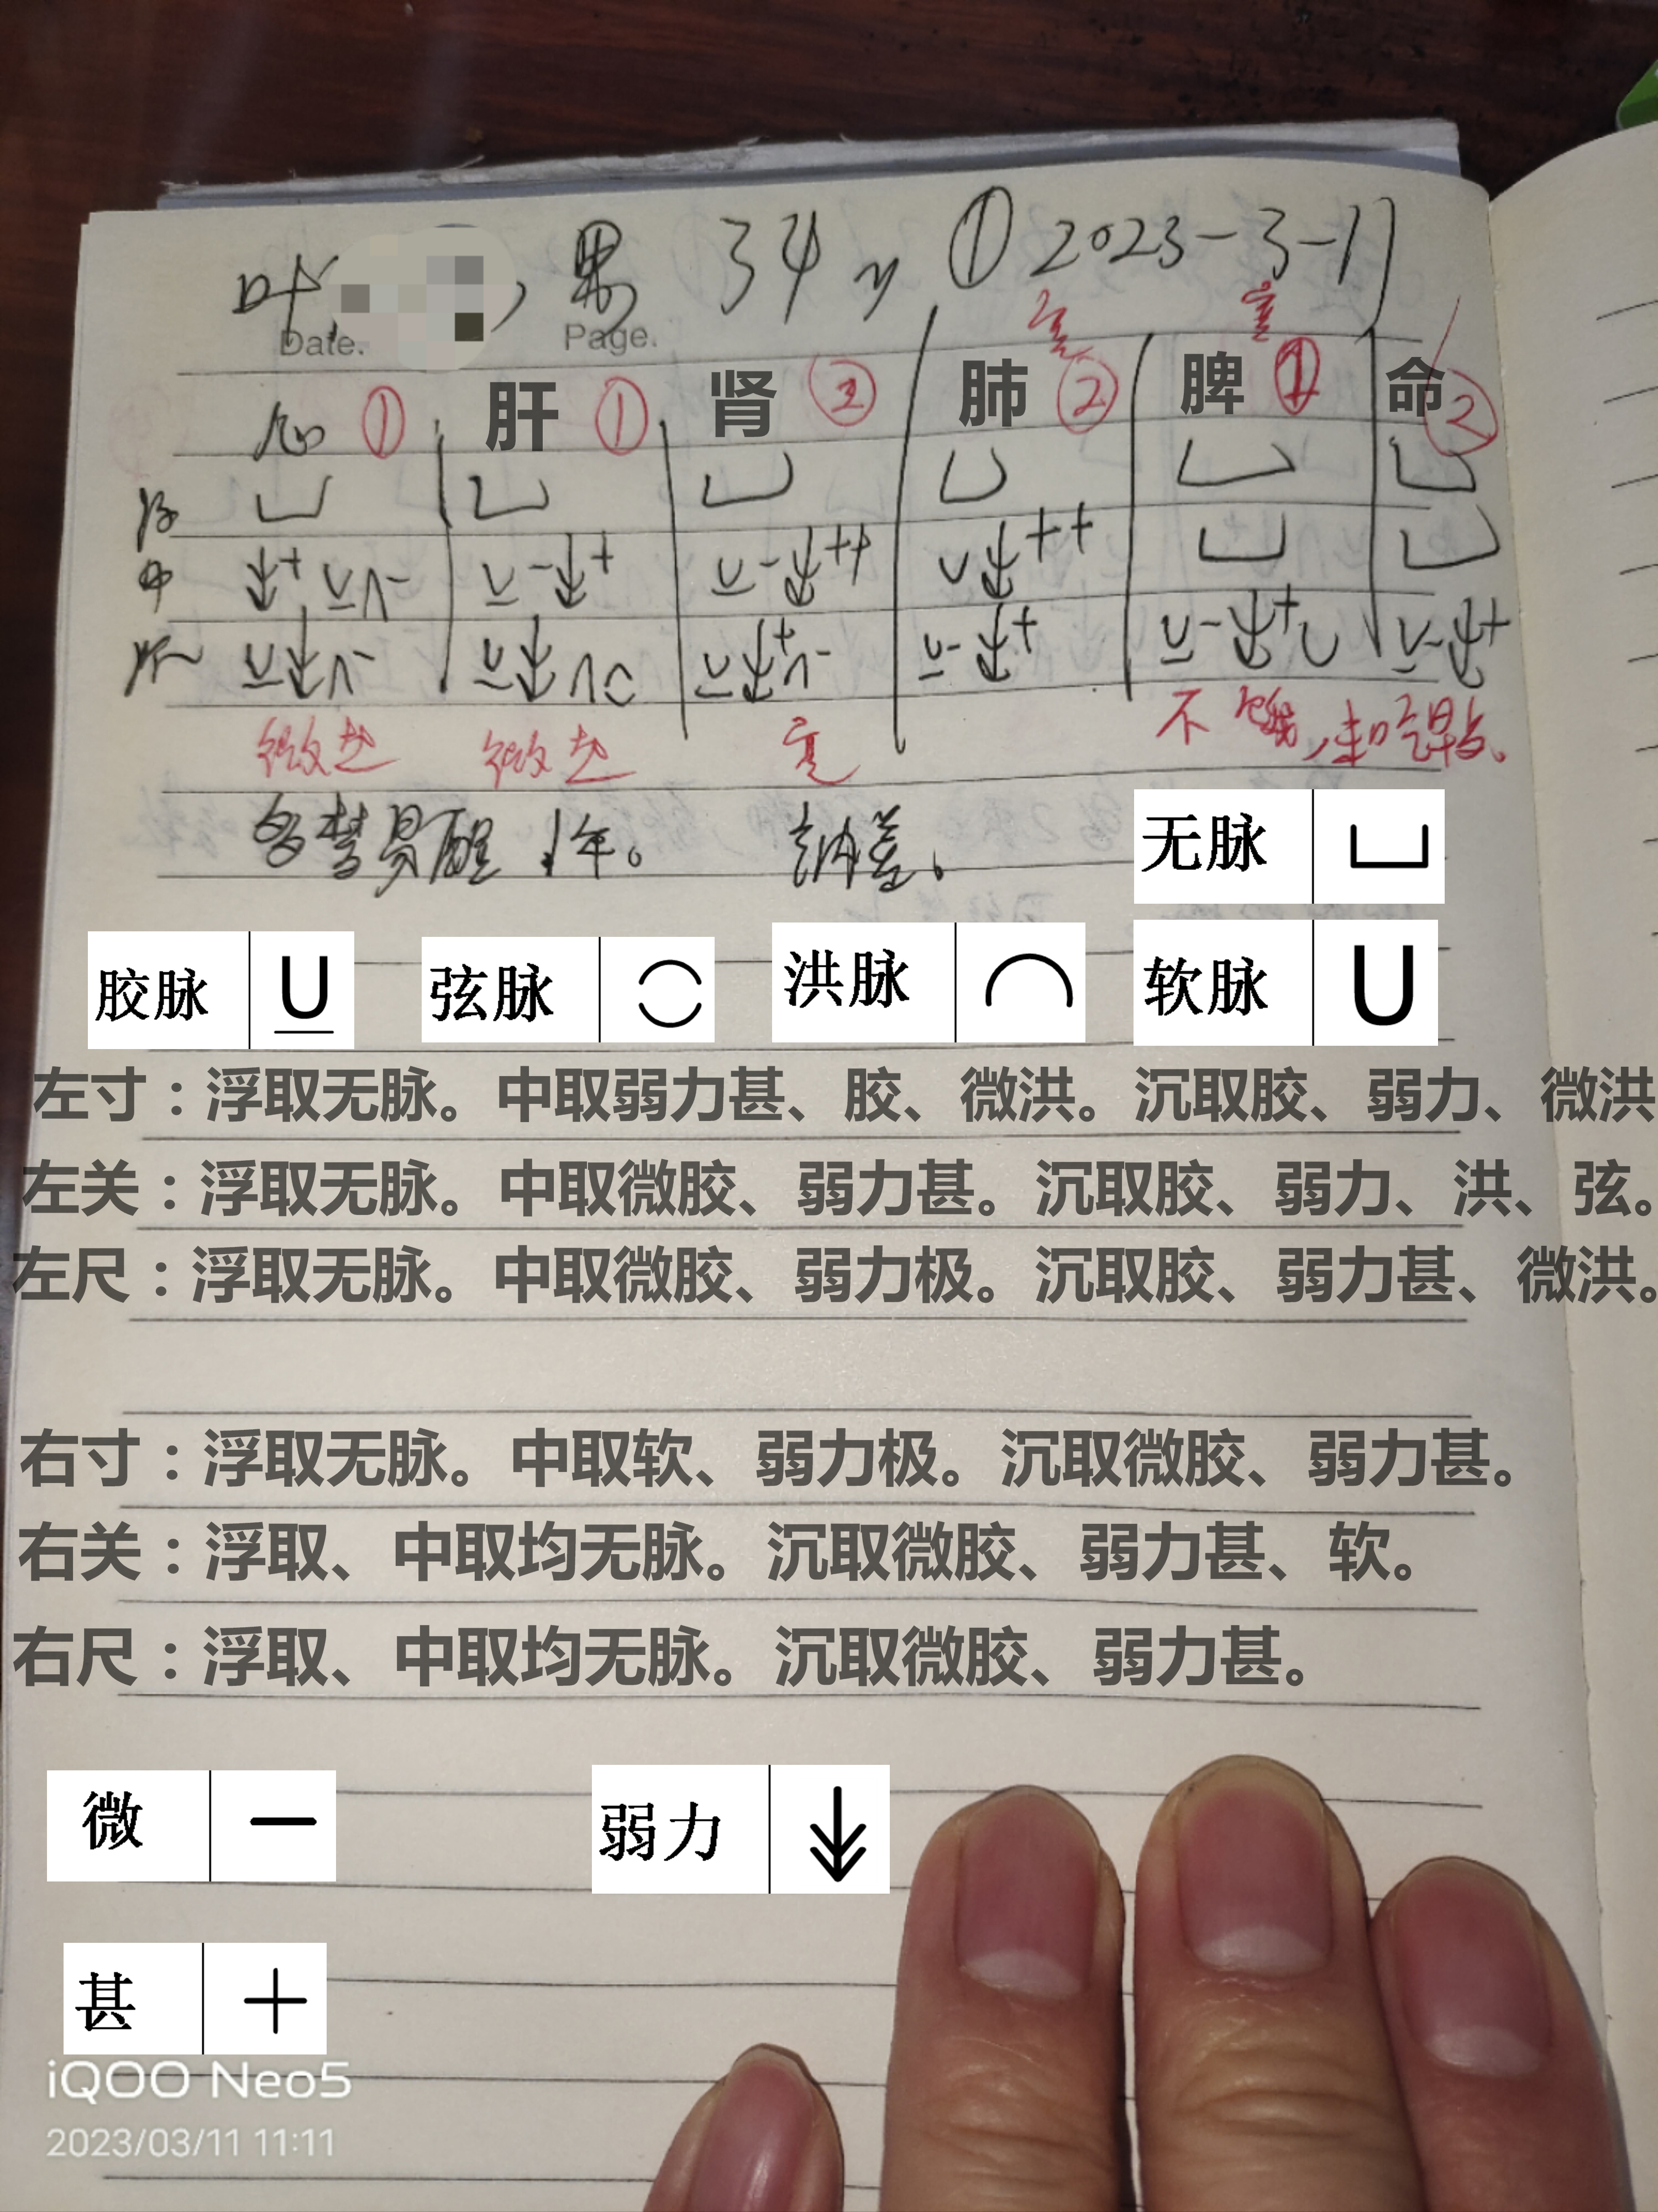 叶 , 男 34y ① 2023-3-11
Date. Page.
心 ① 肝 ① 肾 ② 肺 ② 脾 ① 命 ②
浮
中 + - - + - ++ ++
沉 - + - - + - + - +
微 微 不饿,
多梦易醒1年。 纳差。
无脉
胶脉 弦脉 洪脉 软脉
左寸：浮取无脉。中取弱力甚、胶、微洪。沉取胶、弱力、微洪
左关：浮取无脉。中取微胶、弱力甚。沉取胶、弱力、洪、弦。
左尺：浮取无脉。中取微胶、弱力极。沉取胶、弱力甚、微洪。
右寸：浮取无脉。中取软、弱力极。沉取微胶、弱力甚。
右关：浮取、中取均无脉。沉取微胶、弱力甚、软。
右尺：浮取、中取均无脉。沉取微胶、弱力甚。
微 弱力
甚
iQOO Neo5
2023/03/11 11:11